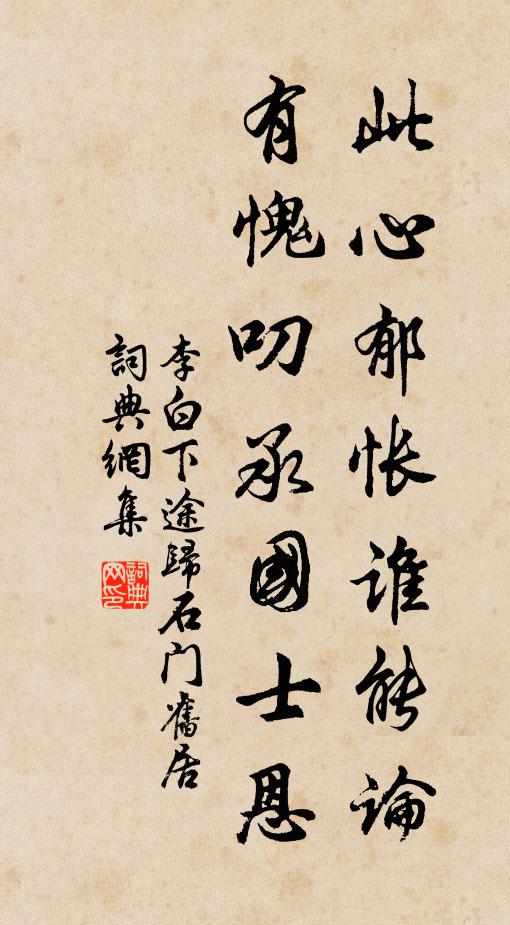 此心郁怅谁能論
有愧叨承國士恩
李白下途歸石门舊居
詞典網集
詞典网印